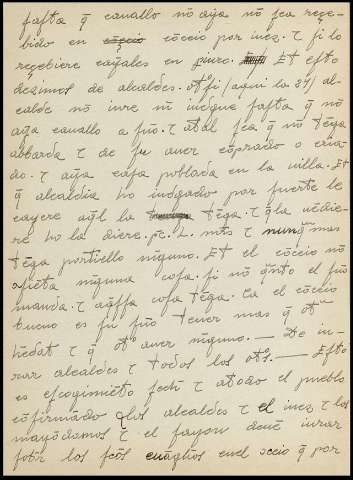 fasta q̃ cauallo nõ aya nõ sea reçe-
bido en cõceio por iuez. τ si lo
reçebiere cayales en periuro. Et esto
dezimos de alcaldes. otsi (aqui la 34) al-
calde nõ iure nĩ iudgue fasta q̃ nõ
aya cauallo a suo. τ atal sea q̃ nõ tẽga
albarda τ de su auer cõprado o cria-
do. τ aya casa poblada en la uilla. Et
q̃ alcaldia ho iudgado por fuerte le
cayere aq̃l la tẽga. τ q̃ la uẽdie-
re ho la diere. pc. L. mrs τ nunq̃ mas
tẽga portiello ninguno. Et el cõceio nõ
ninguna cosa. si nõ q̃nto el fuo
manda. τ aq̃ssa cosa tẽga. Ca el cõceio
bueno es su fuo tener mas q̃ ot
hedat τ q̃ ot auer ninguno. — De iu-
rar alcaldes τ todos los ots. — Esto
es escogimiẽto fech τ atodo el pueblo
cõfirmado los alcaldes τ el iuez τ los
mayordomos τ el sayon deuẽ iurar
sobr los scõs euãglios enel sceio q̃ por